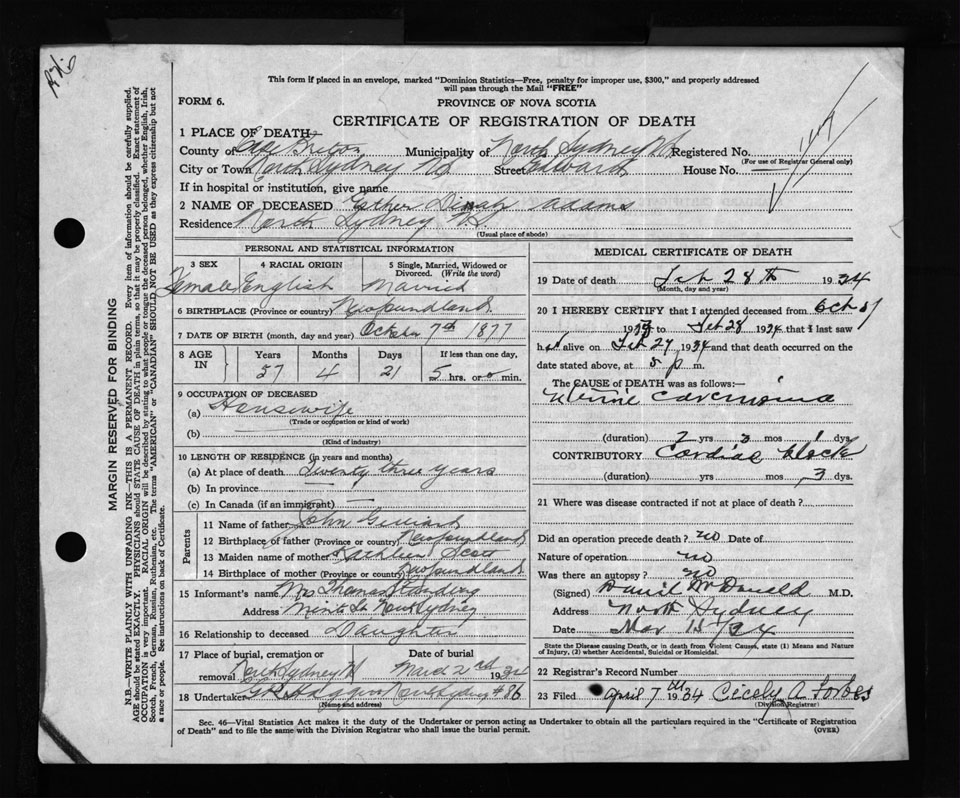 This form if placed in an envelope, marked "Dominion Statistics—Free, penalty for improper use, $300," and properly addressed
will pass through the Mail "FREE"
FORM 6.
PROVINCE OF NOVA SCOTIA
CERTIFICATE OF REGISTRATION OF DEATH
MARGIN RESERVED FOR BINDING
N.B.—WRITE PLAINLY WITH UNFADING INK—THIS IS A PERMANENT RECORD. Every item of information should be carefully supplied.
AGE should be stated EXACTLY. PHYSICIANS should STATE CAUSE OF DEATH in plain terms, so that it may be properly classified. Exact statement of
OCCUPATION is very important. RACIAL ORIGIN will be described by stating to what people or tongue the deceased person belonged, whether English, Irish,
Scotch, French, German, Russian, Ruthenian, etc. The terms "AMERICAN" or "CANADIAN" SHOULD NOT BE USED as they express citizenship but not
a race or people. See instructions on back of Certificate.
1 PLACE OF DEATH—
County of Cape Breton Municipality of North Sydney Registered No.
(For use of Registrar General only)
City or Town North Sydney NS Street Edward House No. —
If in hospital or institution, give name
2 NAME OF DECEASED Esther Dinah Adams
Residence North Sydney N.S.
(Usual place of abode)
PERSONAL AND STATISTICAL INFORMATION
3 SEX Female
4 RACIAL ORIGIN English
5 Single, Married, Widowed or Divorced. (Write the word) Married
6 BIRTHPLACE (Province or country) Newfoundland
7 DATE OF BIRTH (month, day and year) October 7th 1877
8 AGE IN
Years Months Days If less than one day,
57 4 21 5 hrs. or 0 min.
9 OCCUPATION OF DECEASED
(a) Housewife
(Trade or occupation or kind of work)
(b) —
(Kind of industry)
10 LENGTH OF RESIDENCE (in years and months)
(a) At place of death Twenty three years
(b) In province —
(c) In Canada (if an immigrant) —
Parents
11 Name of father John
12 Birthplace of father (Province or country) Newfoundland
13 Maiden name of mother Kathleen Scott
14 Birthplace of mother (Province or country) Newfoundland
15 Informant's name Mrs Thomas Harding
Address North Sydney
16 Relationship to deceased Daughter
17 Place of burial, cremation or removal North Sydney
Date of burial March 2nd 1934
18 Undertaker North Sydney #86
(Name and address)
MEDICAL CERTIFICATE OF DEATH
19 Date of death Feb 28th 1934
(Month, day and year)
20 I HEREBY CERTIFY that I attended deceased from Oct 31
19 to Feb 28 1934 that I last saw
her alive on Feb 27 1934 and that death occurred on the
date stated above, at 5 p m.
The CAUSE OF DEATH was as follows:
Uterine Carcinoma
(duration) 2 yrs 3 mos 1 dys.
CONTRIBUTORY Cardiac block
(duration) yrs mos 3 dys.
21 Where was disease contracted if not at place of death?
Did an operation precede death? no Date of
Nature of operation no
Was there an autopsy? no
(Signed) Daniel McDonald M.D.
Address North Sydney
Date Mar 34
State the Disease causing Death, or in death from Violent Causes, state (1) Means and Nature
of Injury, (2) whether Accidental, Suicidal or Homicidal.
22 Registrar's Record Number
23 Filed April 7th 1934 Cicely A. Forbes
(Division Registrar)
Sec. 46—Vital Statistics Act makes it the duty of the Undertaker or person acting as Undertaker to obtain all the particulars required in the "Certificate of Registration
of Death" and to file the same with the Division Registrar who shall issue the burial permit.
(OVER)